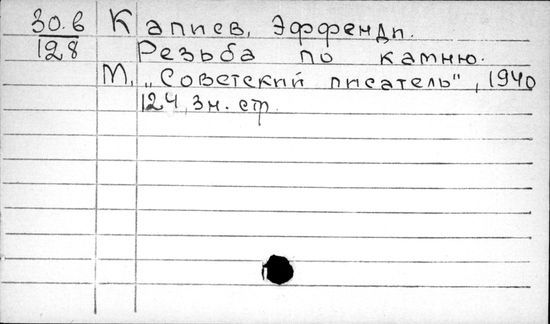 30.6 Капиев, Эффенди.
128 Резьба по камню.
М., „Советский писатель", 1940
124, 3н. стр.